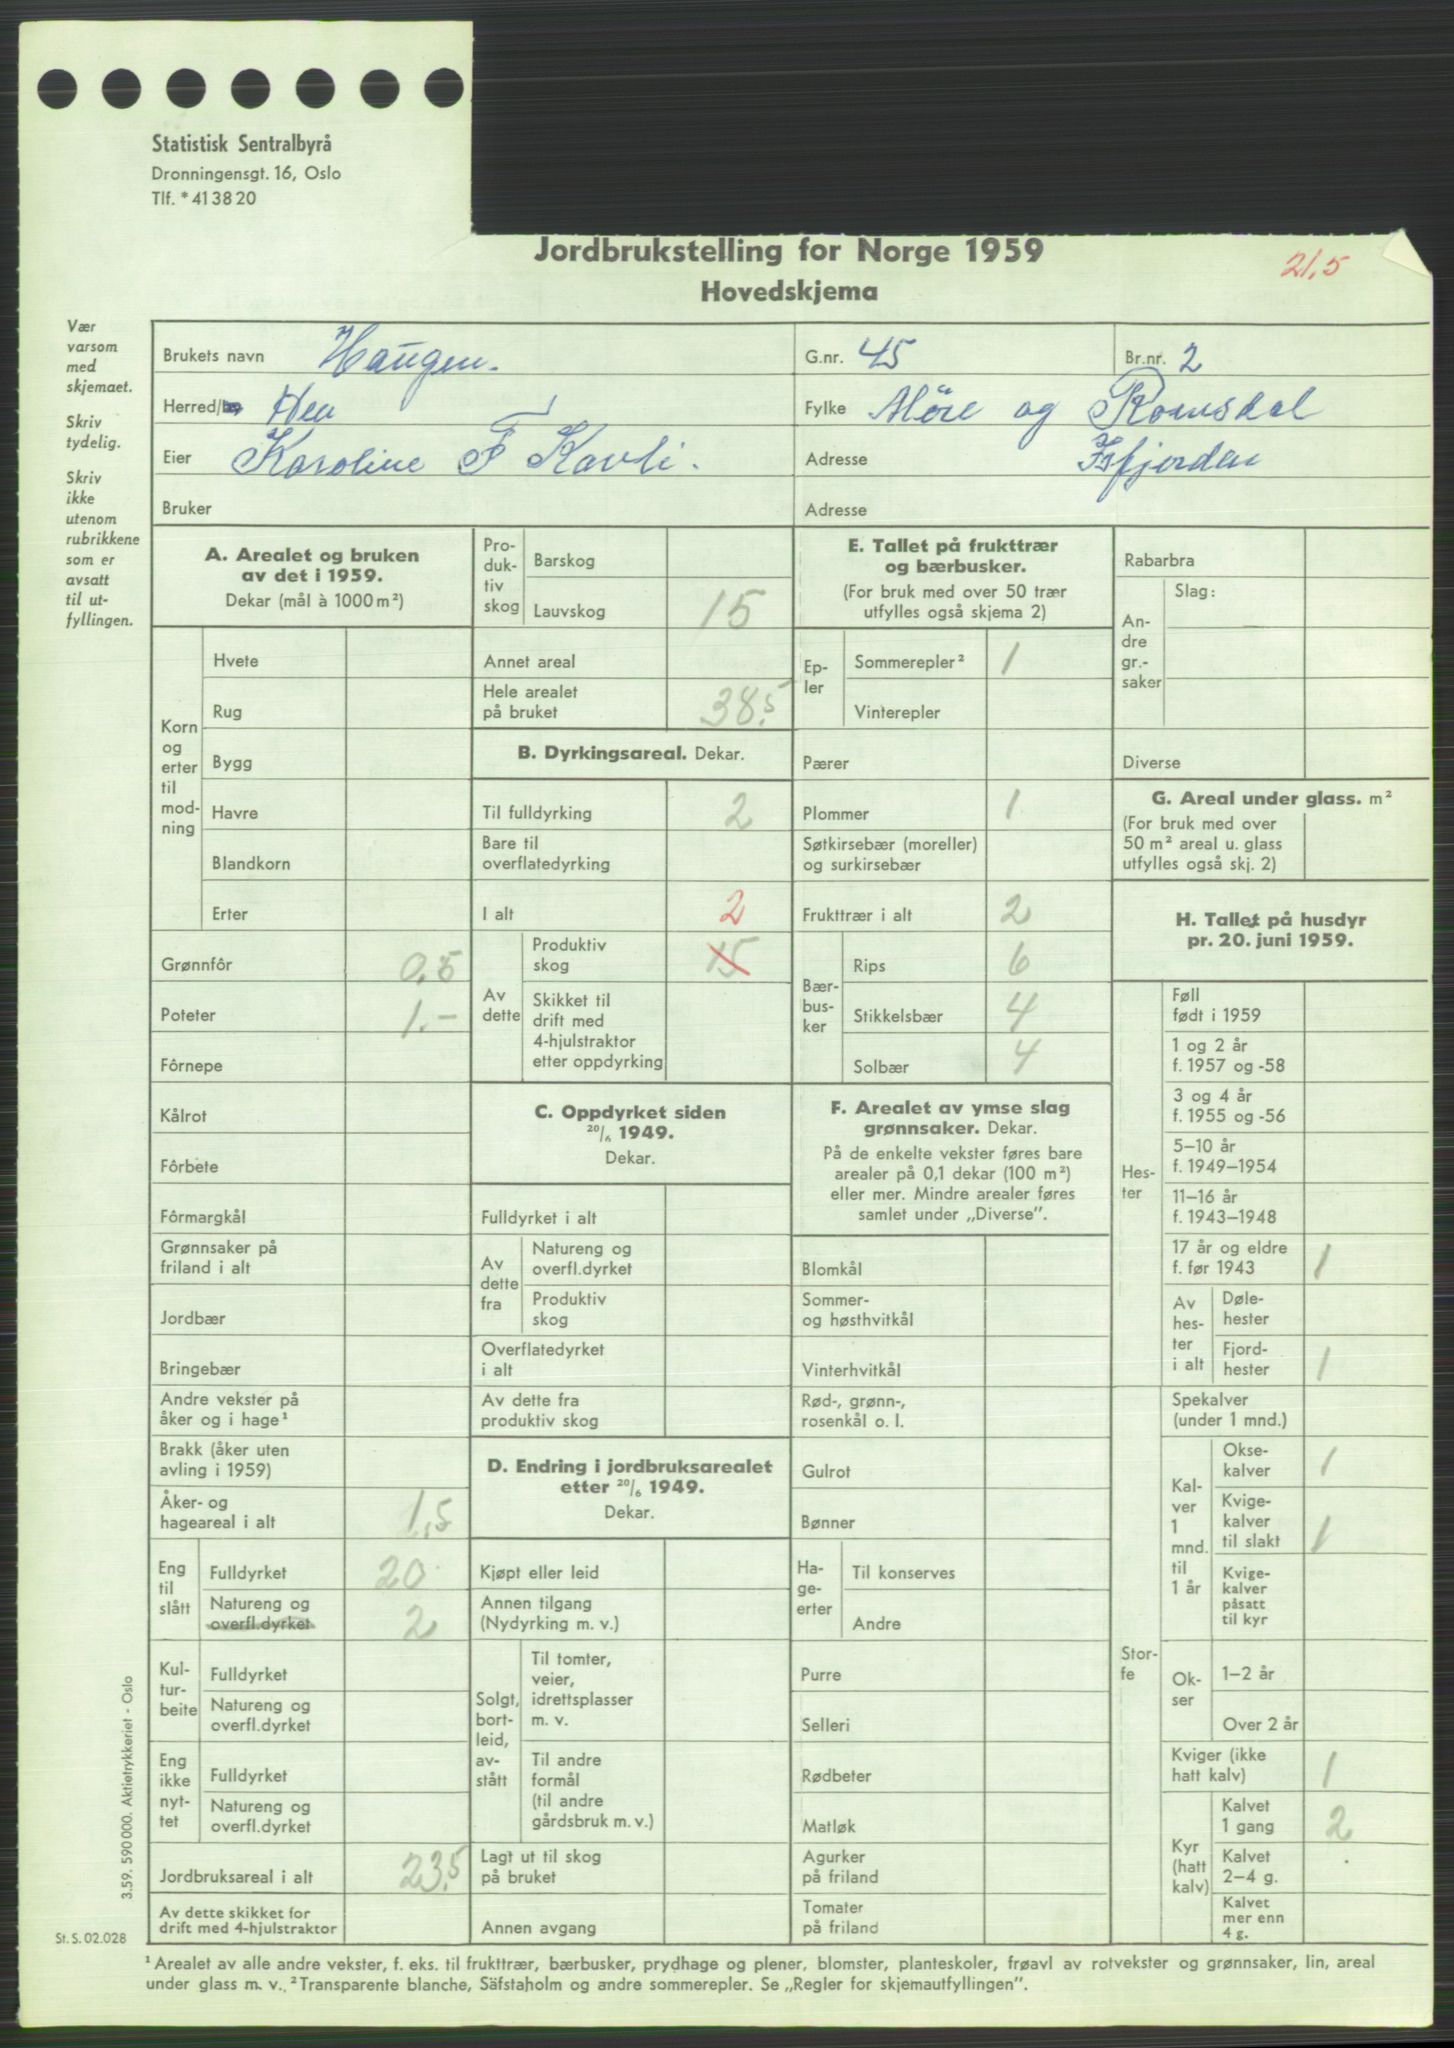 Statistisk Sentralbyrå
Dronningensgt. 16, Oslo
Tlf. * 41 38 20
Jordbrukstelling for Norge 1959
21,5
Hovedskjema
Vær
varsom
med
skjemaet.
Skriv
tydelig.
Skriv
ikke
utenom
rubrikkene
som er
avsatt
til ut-
fyllingen.
Brukets navn Haugen.
G.nr. 45
Br.nr. 2
Herred/ Hen
Fylke Møre og Romsdal
Eier Karoline F Kavli.
Adresse Isfjorden
Bruker
Adresse
A. Arealet og bruken
av det i 1959.
Dekar (mål à 1000 m²)
Korn
og
erter
til
mod-
ning
Hvete
Rug
Bygg
Havre
Blandkorn
Erter
Grønnfôr 0,5
Poteter 1.-
Fôrnepe
Kålrot
Fôrbete
Fôrmargkål
Grønnsaker på
friland i alt
Jordbær
Bringebær
Andre vekster på
åker og i hage¹
Brakk (åker uten
avling i 1959)
Åker- og
hageareal i alt 1,5
Eng
til
slått
Fulldyrket 20
Natureng og
overfl.dyrket 2
Kul-
tur-
beite
Fulldyrket
Natureng og
overfl.dyrket
Eng
ikke
nyt-
tet
Fulldyrket
Natureng og
overfl.dyrket
Jordbruksareal i alt 23,5
Av dette skikket for
drift med 4-hjulstraktor
Pro-
duk-
tiv
skog
Barskog
Lauvskog 15
Annet areal
Hele arealet
på bruket 38,5
B. Dyrkingsareal. Dekar.
Til fulldyrking 2
Bare til
overflatedyrking
I alt 2
Av
dette
Produktiv
skog 15
Skikket til
drift med
4-hjulstraktor
etter oppdyrking
C. Oppdyrket siden
20/6 1949.
Dekar.
Fulldyrket i alt
Av
dette
fra
Natureng og
overfl.dyrket
Produktiv
skog
Overflatedyrket
i alt
Av dette fra
produktiv skog
D. Endring i jordbruksarealet
etter 20/6 1949.
Dekar.
Kjøpt eller leid
Annen tilgang
(Nydyrking m. v.)
Solgt,
bort-
leid,
av-
stått
Til tomter,
veier,
idrettsplasser
m. v.
Til andre
formål
(til andre
gårdsbruk m. v.)
Lagt ut til skog
på bruket
Annen avgang
E. Tallet på frukttrær
og bærbusker.
(For bruk med over 50 trær
utfylles også skjema 2)
Ep-
ler
Sommerepler² 1
Vinterepler
Pærer
Plommer 1
Søtkirsebær (moreller)
og surkirsebær
Frukttrær i alt 2
Bær-
bus-
ker
Rips 6
Stikkelsbær 4
Solbær 4
F. Arealet av ymse slag
grønnsaker. Dekar.
På de enkelte vekster føres bare
arealer på 0,1 dekar (100 m²)
eller mer. Mindre arealer føres
samlet under „Diverse”.
Blomkål
Sommer-
og høsthvitkål
Vinterhvitkål
Rød-, grønn-,
rosenkål o. l.
Gulrot
Bønner
Ha-
ge-
erter
Til konserves
Andre
Purre
Selleri
Rødbeter
Matløk
Agurker
på friland
Tomater
på friland
Rabarbra
An-
dre
gr.-
saker
Slag:
Diverse
G. Areal under glass. m²
(For bruk med over
50 m² areal u. glass
utfylles også skj. 2)
H. Tallet på husdyr
pr. 20. juni 1959.
Hes-
ter
Føll
født i 1959
1 og 2 år
f. 1957 og -58
3 og 4 år
f. 1955 og -56
5–10 år
f. 1949–1954
11–16 år
f. 1943–1948
17 år og eldre
f. før 1943 1
Av
hes-
ter
i alt
Døle-
hester
Fjord-
hester 1
Stor-
fe
Spekalver
(under 1 mnd.)
Kal-
ver
1
mnd.
til
1 år
Okse-
kalver 1
Kvige-
kalver
til slakt 1
Kvige-
kalver
påsatt
til kyr
Ok-
ser
1–2 år
Over 2 år
Kviger (ikke
hatt kalv) 1
Kyr
(hatt
kalv)
Kalvet
1 gang 2
Kalvet
2–4 g.
Kalvet
mer enn
4 g.
3.59. 590 000. Aktietrykkeriet - Oslo
St. S. 02.028
¹ Arealet av alle andre vekster, f. eks. til frukttrær, bærbusker, prydhage og plener, blomster, planteskoler, frøavl av rotvekster og grønnsaker, lin, areal
under glass m. v. ² Transparente blanche, Säfstaholm og andre sommerepler. Se „Regler for skjemautfyllingen”.